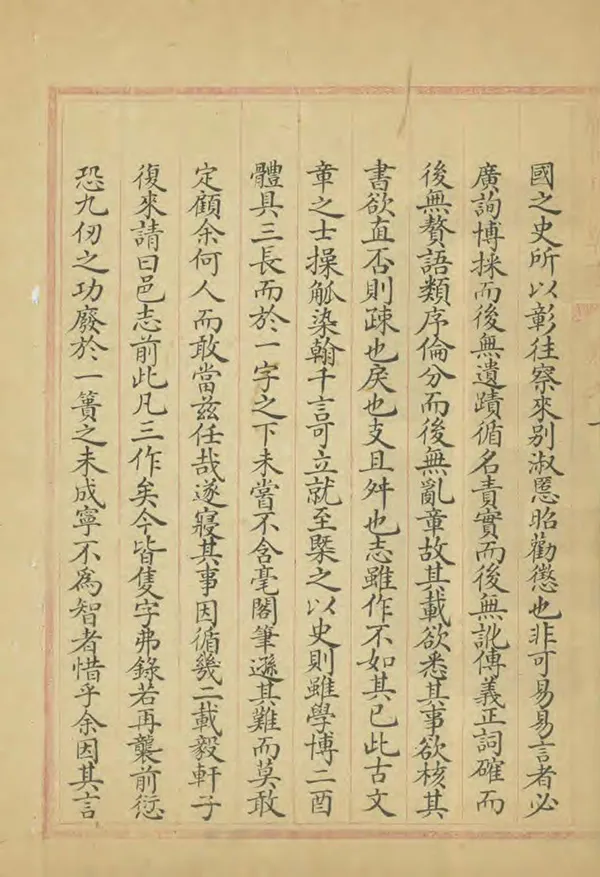 國之史所以彰往察來别淑慝昭勸懲也非可易易言者必
廣詢博採而後無遺蹟循名責實而後無訛傳義正詞確而
後無贅語類序倫分而後無亂章故其載欲悉其事欲核其
書欲直否則疎也戾也支且舛也志雖作不如其已此古文
章之士操觚染翰千言可立就至槩之以史則雖學博二酉
體具三長而於一字之下未嘗不含毫閣筆遜其難而莫敢
定顧余何人而敢當兹任哉遂寢其事因循幾二載毅軒子
復來請曰邑志前此凡三作矣今皆隻字弗錄若再襲前愆
恐九仞之功廢於一簣之未成寧不為智者惜乎余因其言